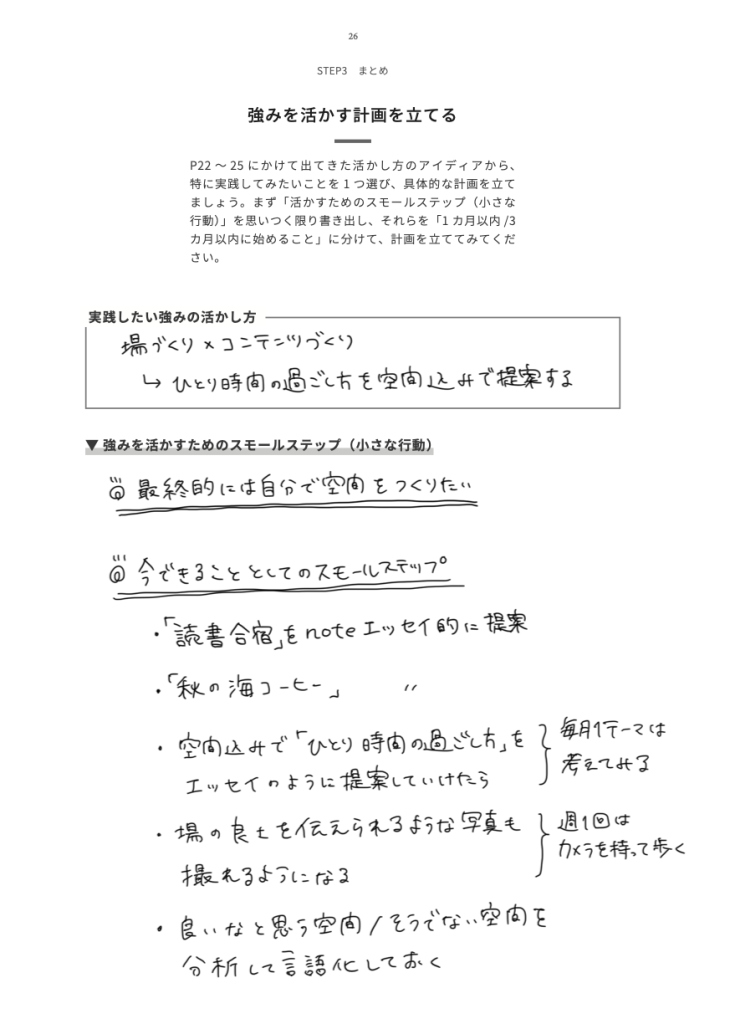 26
STEP3 まとめ
強みを活かす計画を立てる
P22 〜 25 にかけて出てきた活かし方のアイディアから、
特に実践してみたいことを 1 つ選び、具体的な計画を立て
ましょう。まず「活かすためのスモールステップ（小さな
行動）」を思いつく限り書き出し、それらを「1 カ月以内 /3
カ月以内に始めること」に分けて、計画を立ててみてくだ
さい。
実践したい強みの活かし方
場づくり × コンテンツづくり
↳ ひとり時間の過ごし方を空間込みで提案する
▼ 強みを活かすためのスモールステップ（小さな行動）
最終的には自分で空間をつくりたい
今できることとしてのスモールステップ
・「読書合宿」をnoteエッセイ的に提案
・「秋の海コーヒー」 〃
・空間込みで「ひとり時間の過ごし方」を
エッセイのように提案していけたら
毎月1テーマは
考えてみる
・場の良さを伝えられるような写真も
撮れるようになる
週1回は
カメラを持って歩く
・良いなと思う空間/そうでない空間を
分析して言語化しておく